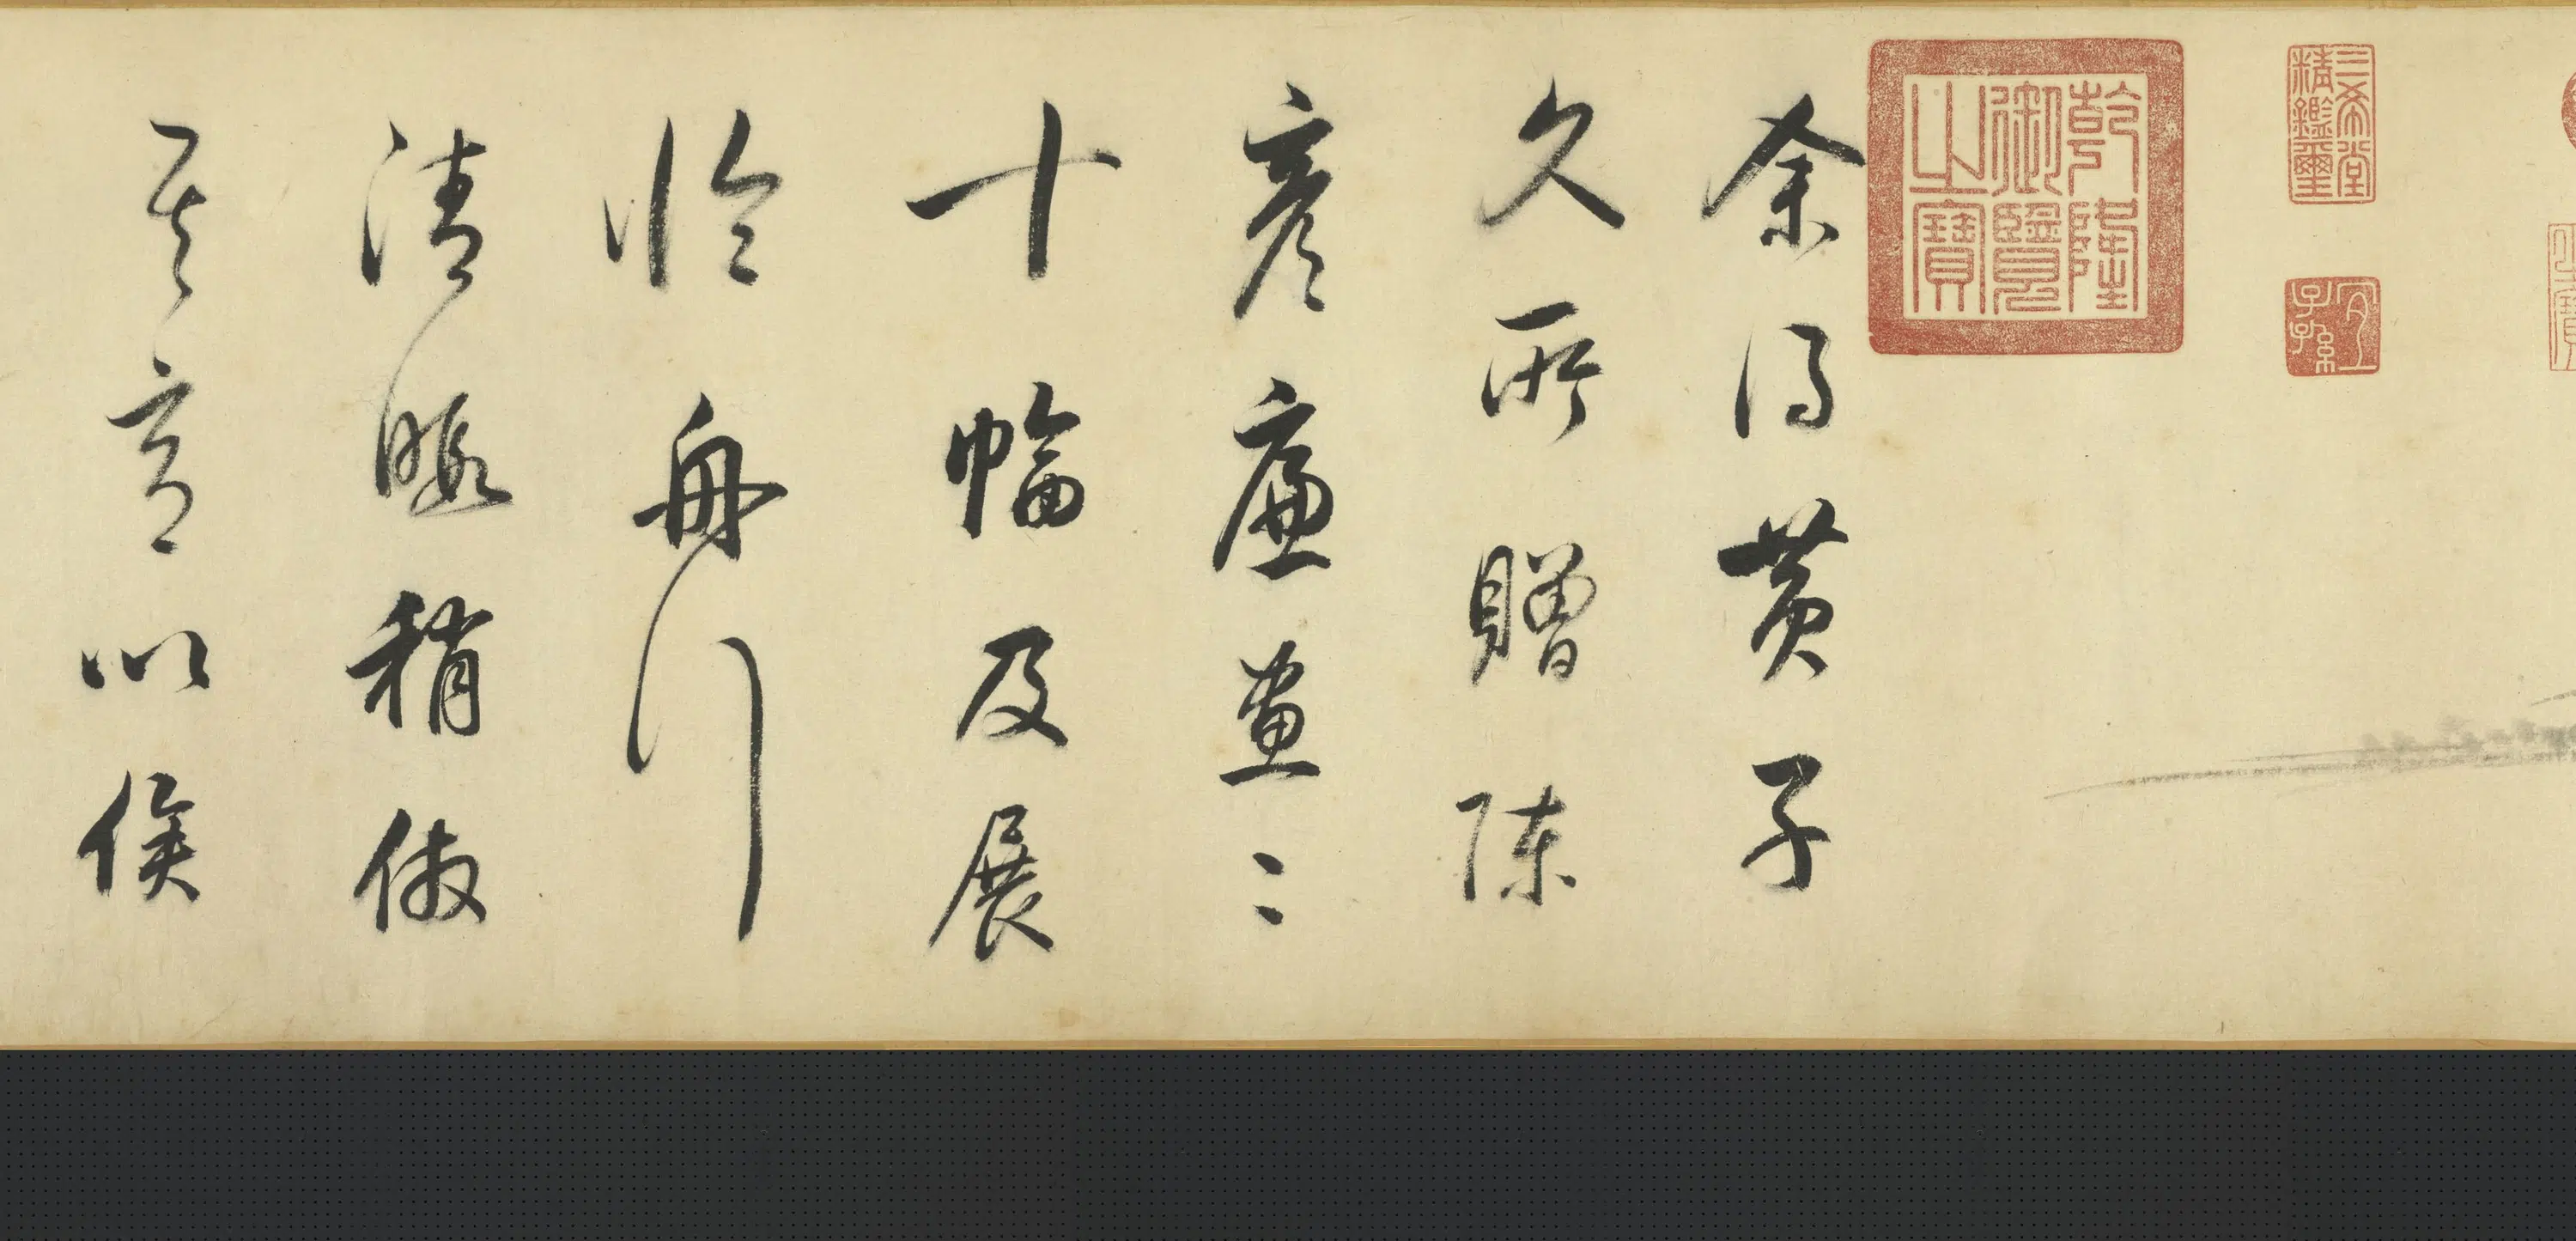 三希堂
精鑑璽
宜
子孫
乾隆
御覽
之寶
余得黃子
久所贈陳
彥廉畫二
十幅及展
臨舟行
清暇稍倣
其意以俟